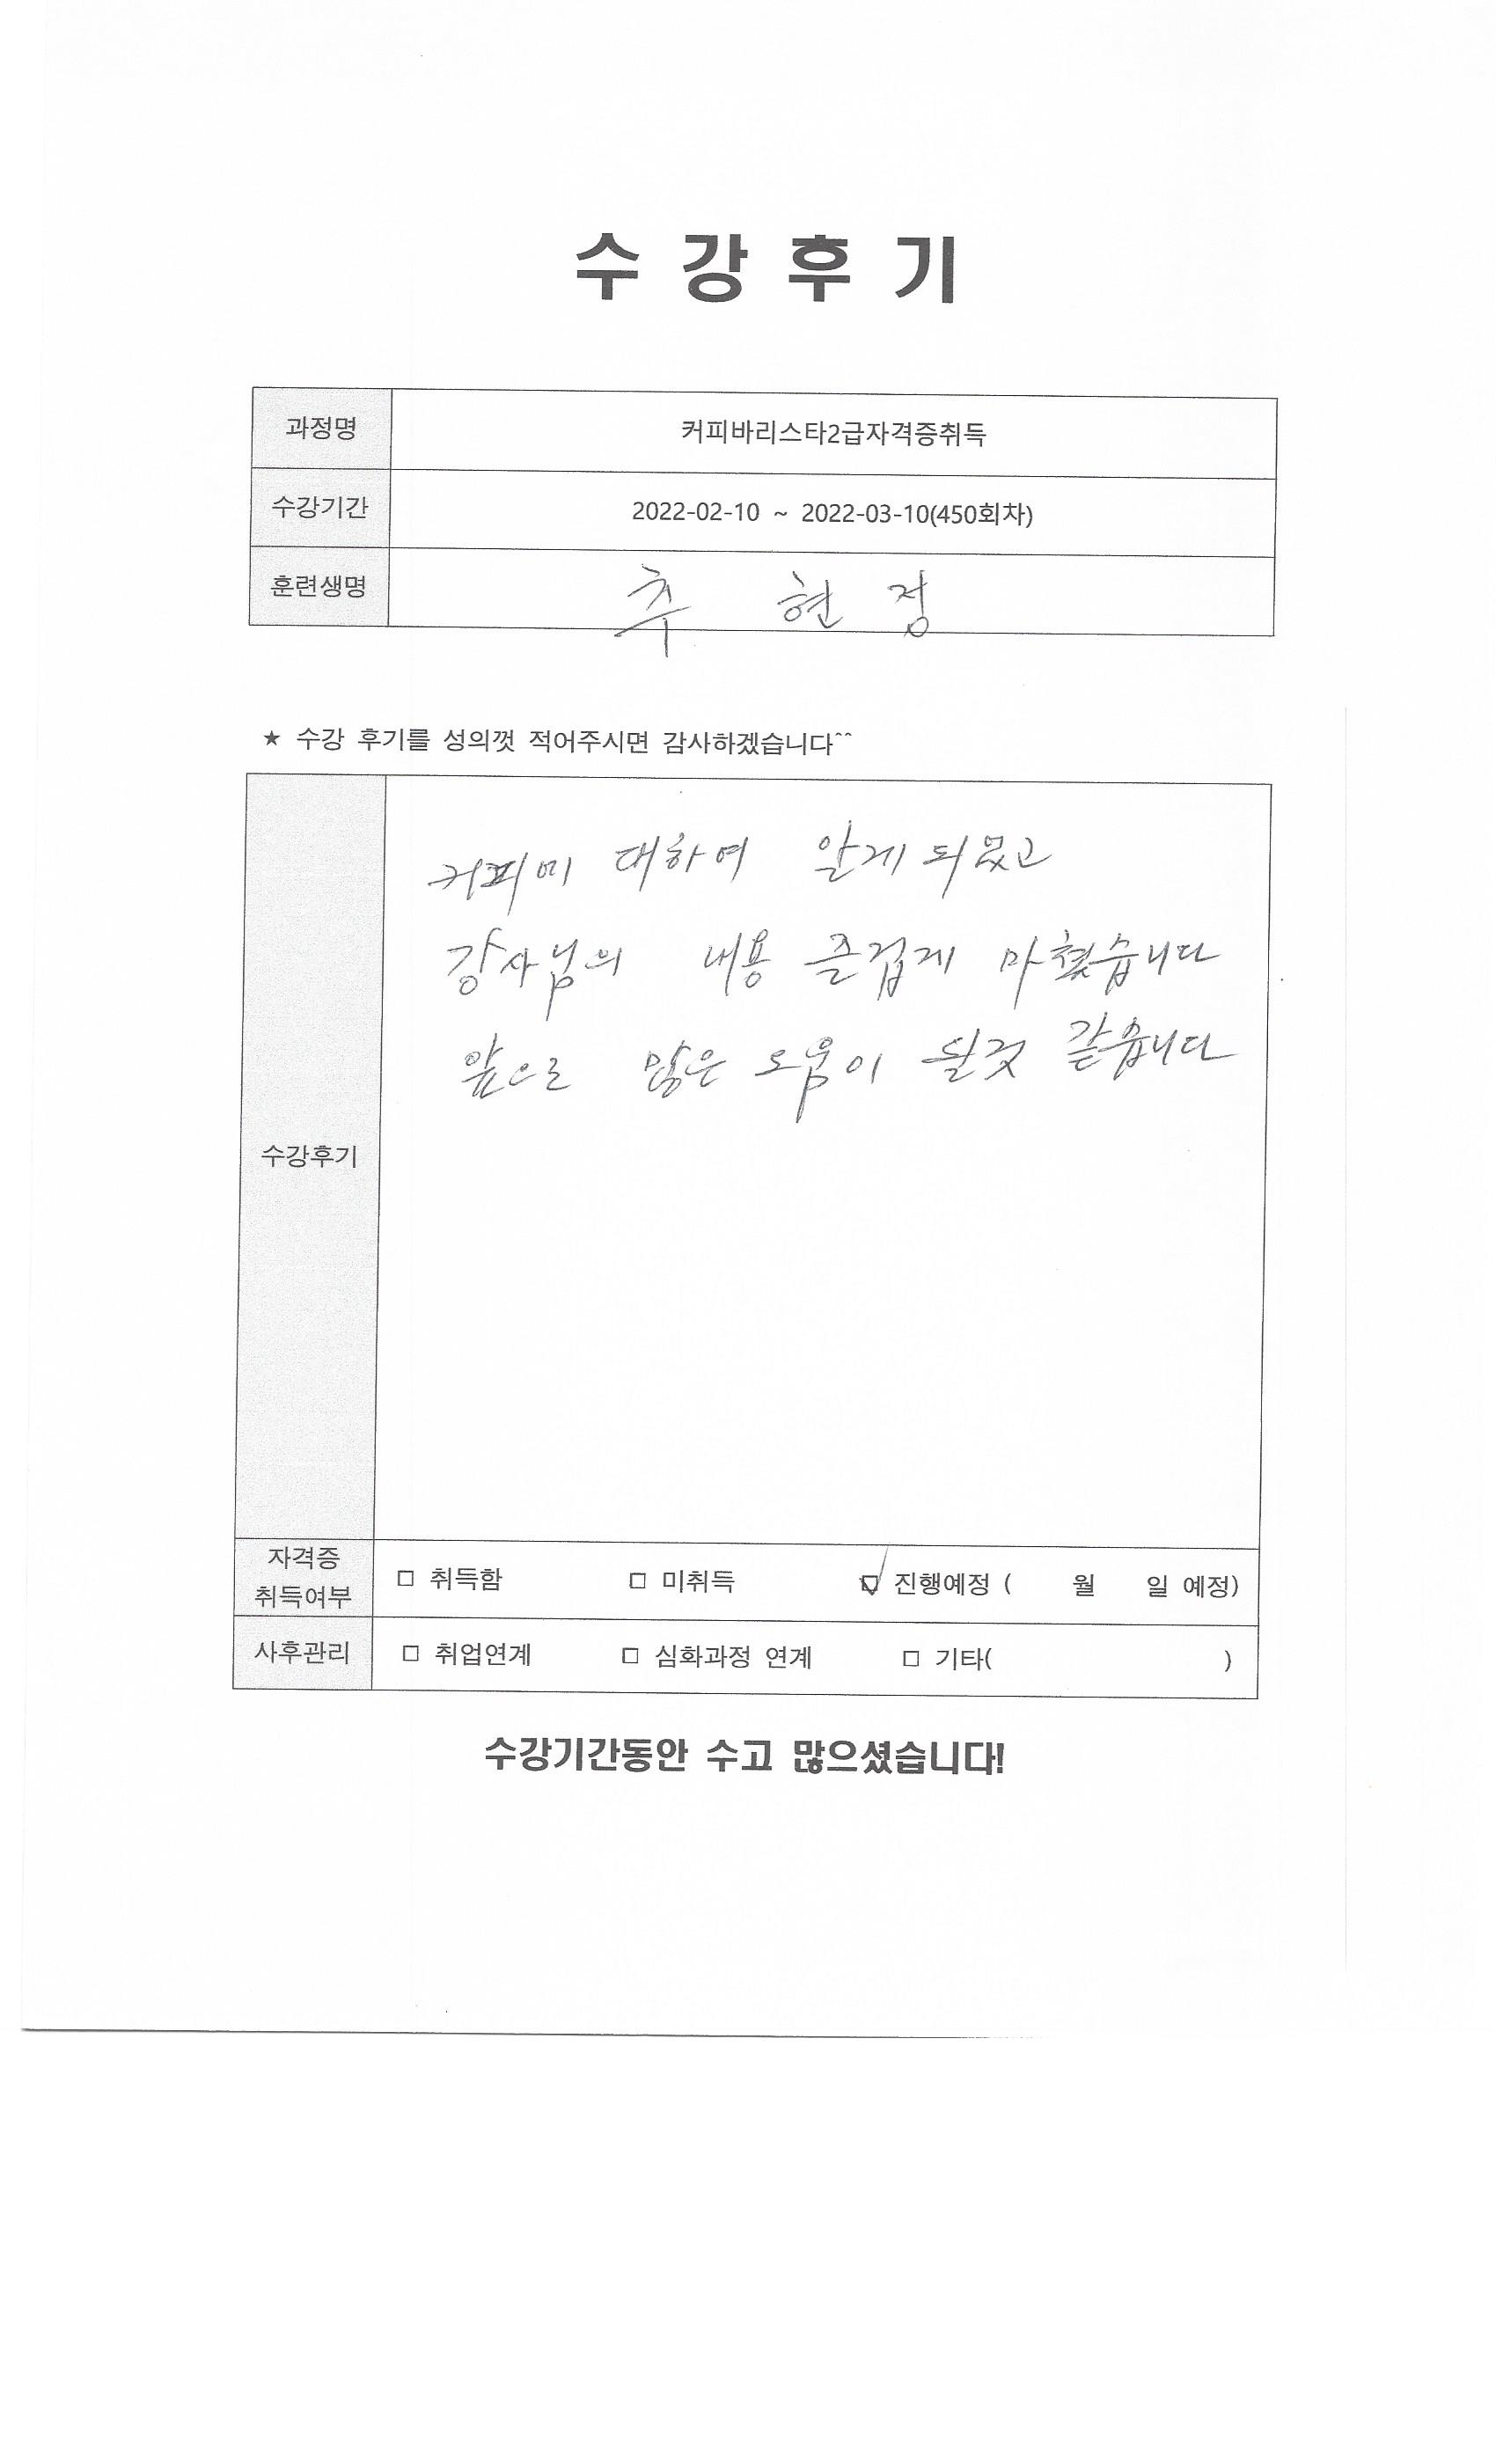 수 강 후 기
과정명 커피바리스타2급자격증취득
수강기간 2022-02-10 ~ 2022-03-10(450회차)
훈련생명 추 현 정
★ 수강 후기를 성의껏 적어주시면 감사하겠습니다^^
커피에 대하여 알게 되었고
강사님의 내용 즐겁게 마쳤습니다
앞으로 많은 도움이 될것 같습니다
수강후기
자격증
취득여부 □ 취득함 □ 미취득 ☑ 진행예정 ( 월 일 예정)
사후관리 □ 취업연계 □ 심화과정 연계 □ 기타( )
수강기간동안 수고 많으셨습니다!